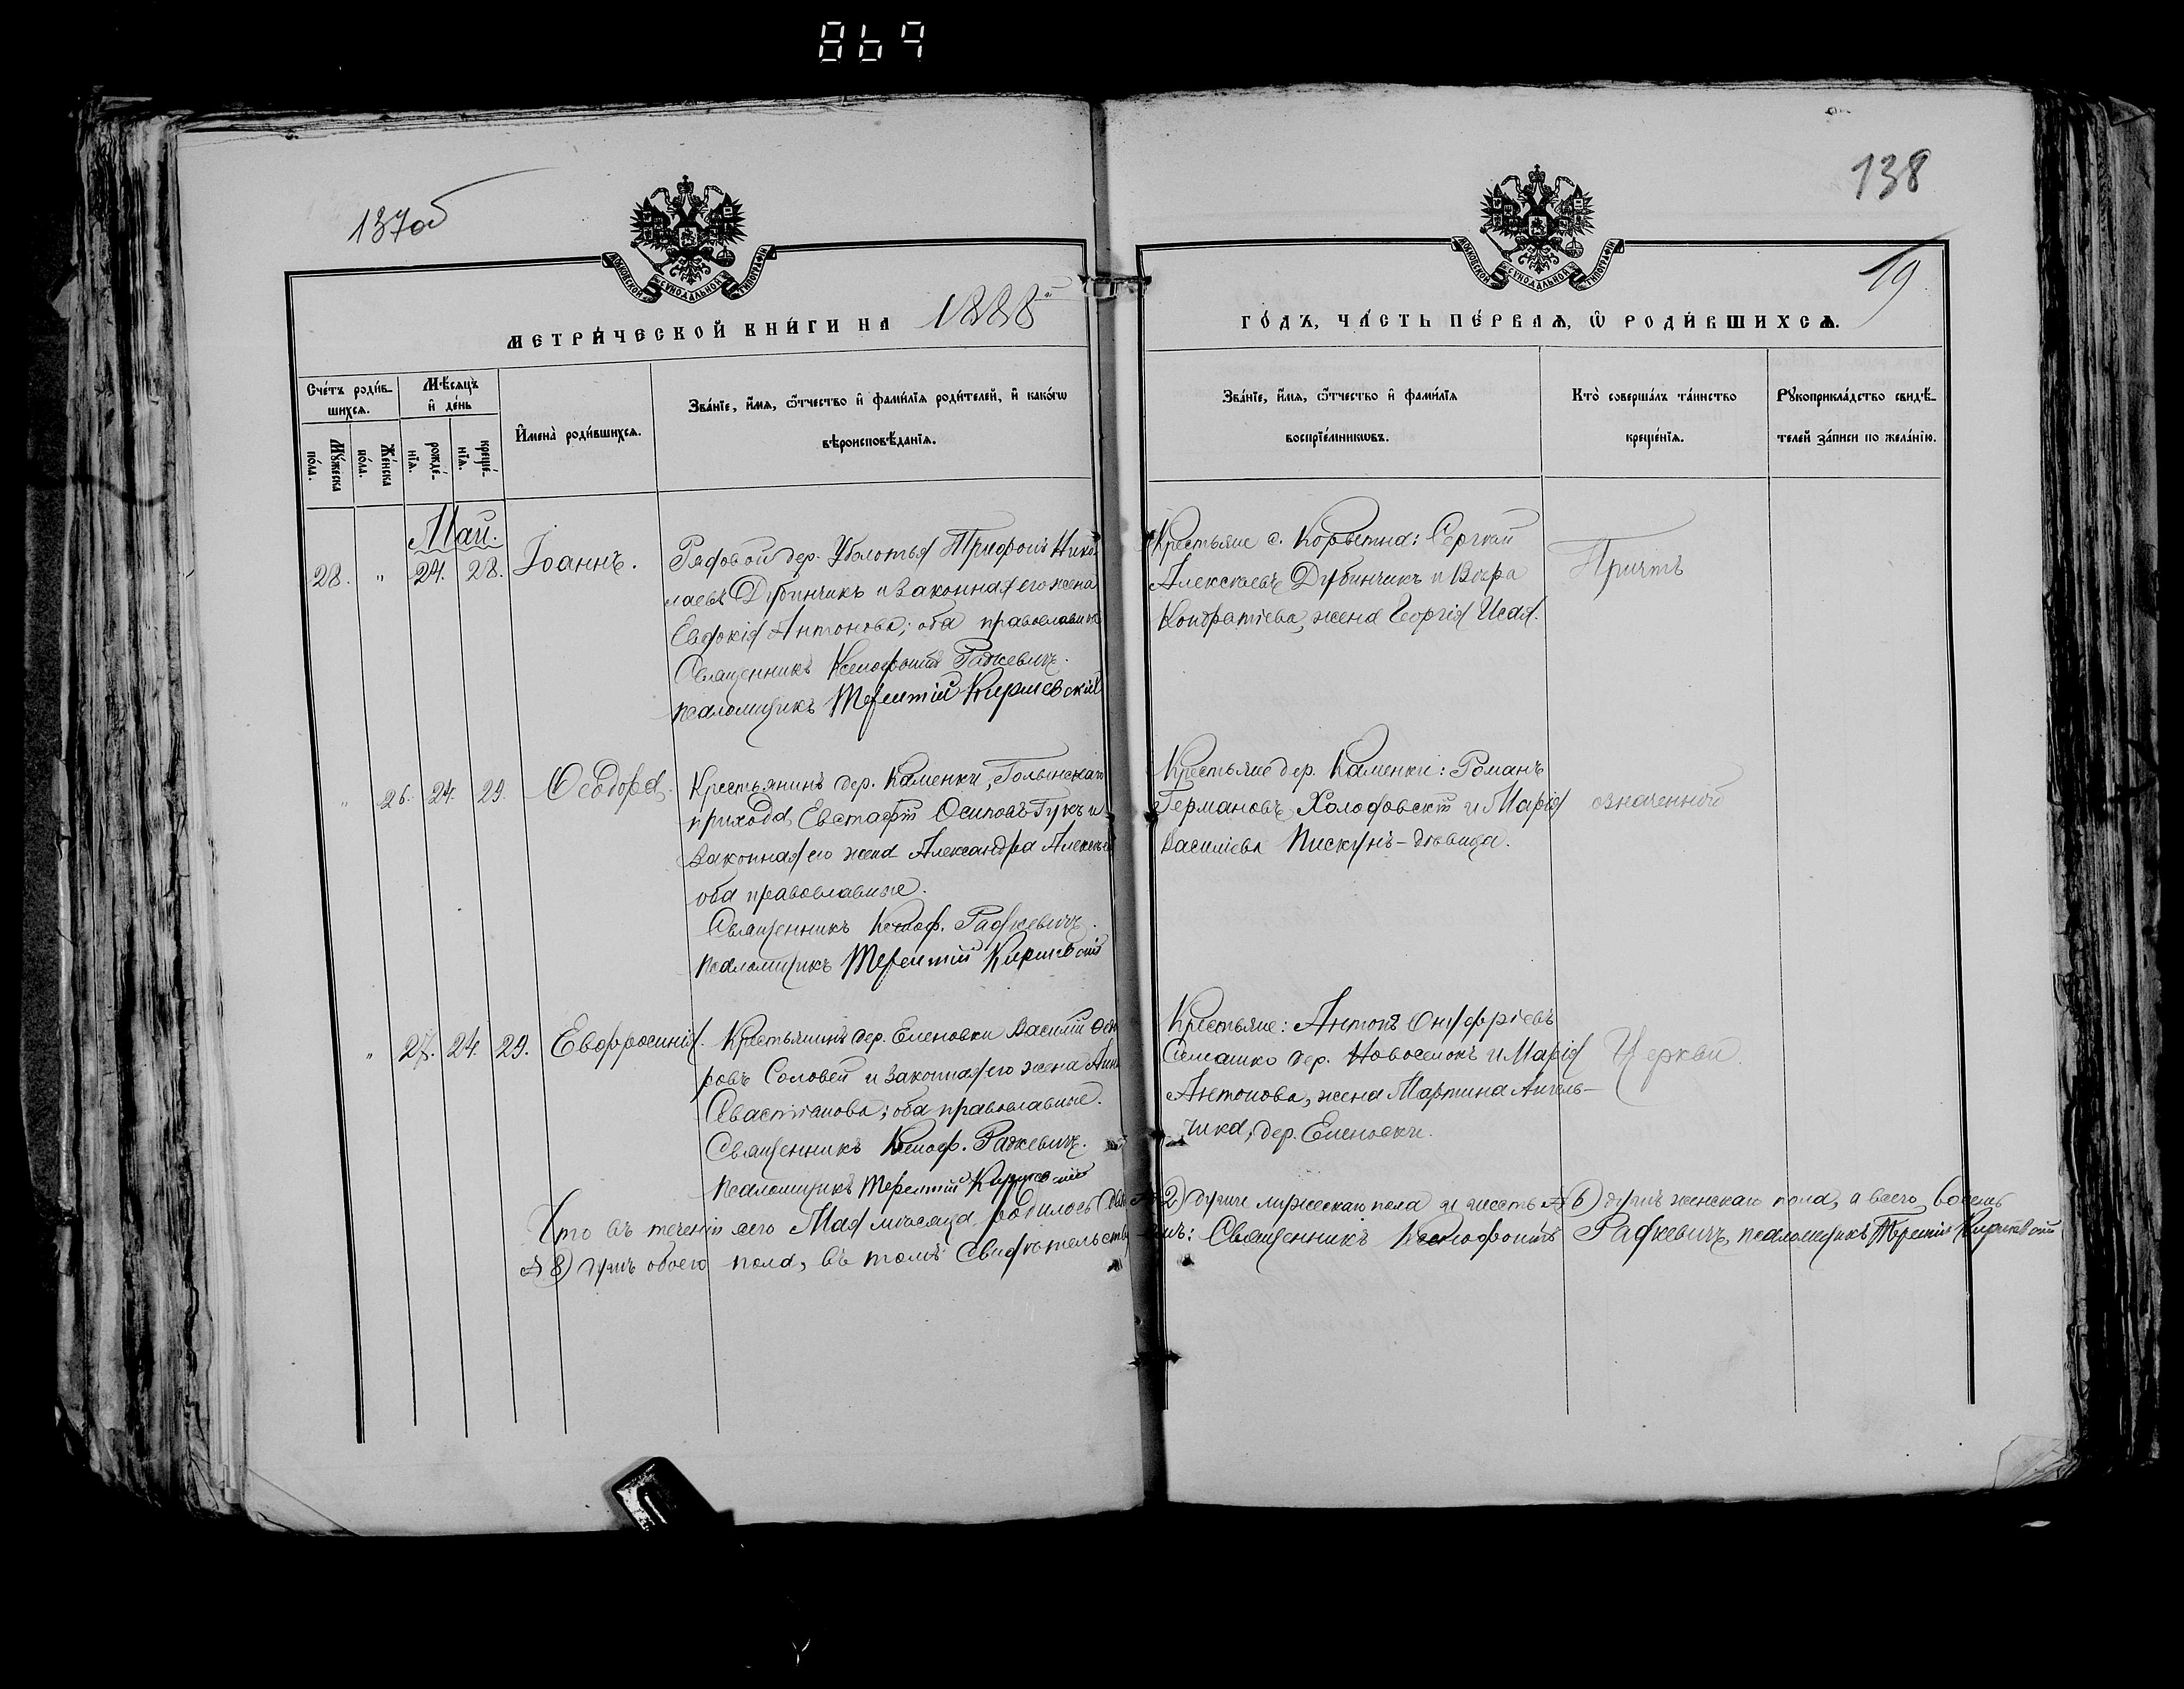 869
137об
138
19
МОСКОВСКОЙ СѴНОДАЛЬНОЙ ТИПОГРАФІИ
МОСКОВСКОЙ СѴНОДАЛЬНОЙ ТИПОГРАФІИ
МЕТРИ́ЧЕСКОЙ КНИ́ГИ НА 1888й
ГО́ДЪ, ЧА́СТЬ ПЕ́РВАЯ, Ѽ РОДИ́ВШИХСЯ.
Сче́тъ роди́в-
шихся.
Мѣ́сяцъ
и҆ де́нь
Му́жеска
по́ла.
Же́нска
по́ла.
рожде́-
нія.
креще́-
нія.
И҆мена̀ роди́вшихся.
Зва́ніе, и҆́мя, ѻ҆́тчество и҆ фами́лія роди́телей, и҆ како́гѡ
вѣроисповѣ́данія.
Зва́ніе, и҆́мя, ѻ҆́тчество и҆ фами́лія
воспріе́мникѡвъ.
Кто̀ соверша́лъ та́инство
креще́нія.
Рꙋкоприкла́дство свидѣ́-
телей за́писи по жела́нію.
Май.
28. " 24. 28. Іоаннъ.
Рядовой дер. Уболотья Трифонъ Нико
лаевъ Дубинчикъ и законная его жена
Евдокія Антонова; оба православн
Священникъ Ксенофонтъ Радкевичъ.
псаломщикъ Терентій Киркевскій
Крестьяне с. Корытна: Сергѣй
Алексѣевъ Дубинчикъ и Вѣра
Кондратіева, жена Георгія Исая.
Причтъ
" 26. 24. 29. Ѳеодора.
Крестьянинъ дер. Каменки, Голынскаго
прихода, Евстафій Осиповъ Гукъ и
законная его жена Александра Алексѣев
оба православные.
Священникъ Ксеноф. Радкевичъ.
псаломщикъ Терентій Киркевскій
Крестьяне дер. Каменки: Романъ
Германовъ Холодовскій и Марія
Василіева Пискунъ - дѣвица.
означенной
" 27. 24. 29. Евфросинія.
Крестьянинъ дер. Еленовки Василій
ровъ Соловей и законная его жена Анна
Севастіанова; оба православные.
Священникъ Ксеноф. Радкевичъ.
псаломщикъ Терентій Киркевскій
Крестьяне: Антонъ Онуфріевъ
Семашко дер. Новоселокъ и Марія
Антонова, жена Мартина Ангель-
чика, дер. Еленовки.
Церкви.
Что въ теченіи сего Мая мѣсяца родилось двѣ (2) души мужескаго пола и шесть (6) душъ женскаго пола, а всего восемь
(8) душъ обоего пола, въ томъ свидѣтельствуемъ: Священникъ Ксенофонтъ Радкевичъ, псаломщикъ Терентій Киркевскій